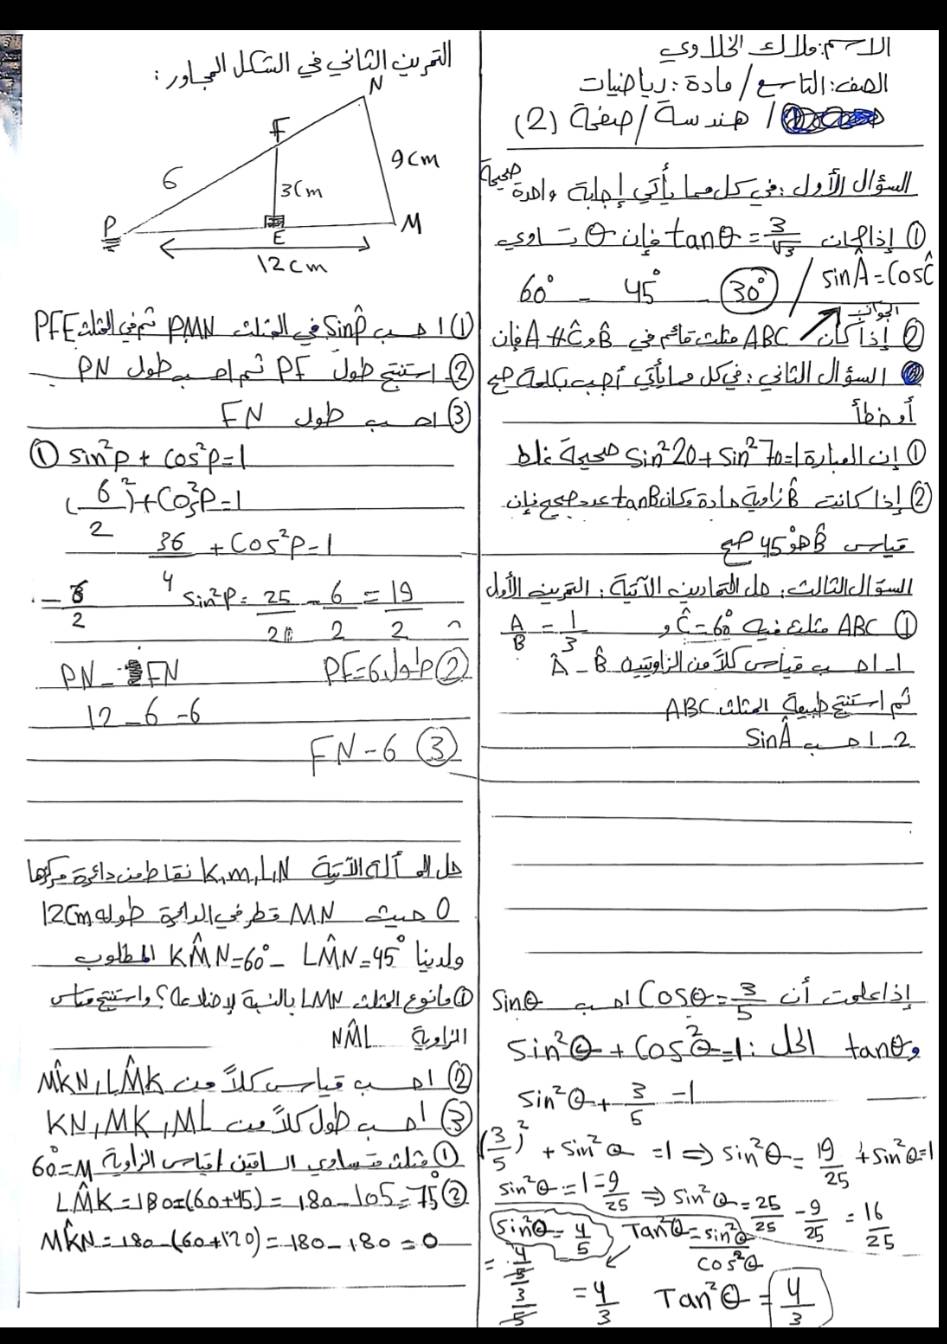 الاسم: ملاك الخلاوي
الصف: التاسع / مادة: رياضيات
/ هندسة / صفحة (2)
السؤال الأول: في كل مما يأتي إجابة واحدة صحيحة
① إذا كان tanθ = 3/√3 فإن θ تساوي
60° - 45° - 30° / sinÂ = CosĈ
الجواب
② إذا كان ABC مثلث قائم في B̂ و Â ≠ Ĉ فإن
السؤال الثاني: في كل مما يأتي أجب بكلمة صح
أو خطأ
① إن العبارة Sin²20 + Sin²70 = 1 صحيحة غلط
② إذا كانت B̂ زاوية حادة وكان tanB عدد صحيح فإن
قياس B̂ هو 45° صح
السؤال الثالث: حل التمارين الآتية: التمرين الأول
① ABC مثلث فيه Ĉ = 60° و A/B = 1/3
1- احسب قياس كلاً من الزاويتين Â - B̂
ثم استنتج طبيعة المثلث ABC
2- احسب SinÂ
إذا علمت أن Cosθ = 3/5 احسب Sinθ
و tanθ الحل: Sin²θ + Cos²θ = 1
Sin²θ + 3/5 = 1
(3/5)² + Sin²θ = 1 ⇒ Sin²θ = 19/25 + Sin²θ = 1
Sin²θ = 1 = 9/25 ⇒ Sin²θ = 25/25 - 9/25 = 16/25
Sin²θ = 4/5 Tan²θ = sin²θ/cos²θ
= 4/5 / 3/5 = 4/3 Tan²θ = 4/3
التمرين الثاني في الشكل المجاور:
N
F
9cm
6
3cm
P
E
M
12cm
① احسب Sinp̂ في المثلث PMN ثم في المثلث PFE
② استنتج طول PF ثم احسب طول PN
③ احسب طول FN
① Sin²p + Cos²p = 1
(6/2)² + Cos²P = 1
36/4 + Cos²P = 1
Sin²P = 25/2 - 6/2 = 19/2
- 6/2
② طول PF = 6
PN - FN
12 - 6 - 6
③ FN - 6
حل المسألة الآتية K, m, L, N نقاط من دائرة مركزها
O حيث MN قطر في الدائرة طوله 12Cm
ولدينا LM̂N = 45° - KM̂N = 60° المطلوب
① ما نوع المثلث LMN بالنسبة لأضلاعه؟ واستنتج قياس
الزاوية NM̂L
② احسب قياس كلاً من LM̂K, MK̂N
③ احسب طول كلاً من KN, MK, ML
① مثلث متساوي الساقين / قياس الزاوية M = 60°
② LM̂K = 180 = (60+45) = 180 - 105 = 75°
MK̂N = 180 - (60+120) = 180 - 180 = 0